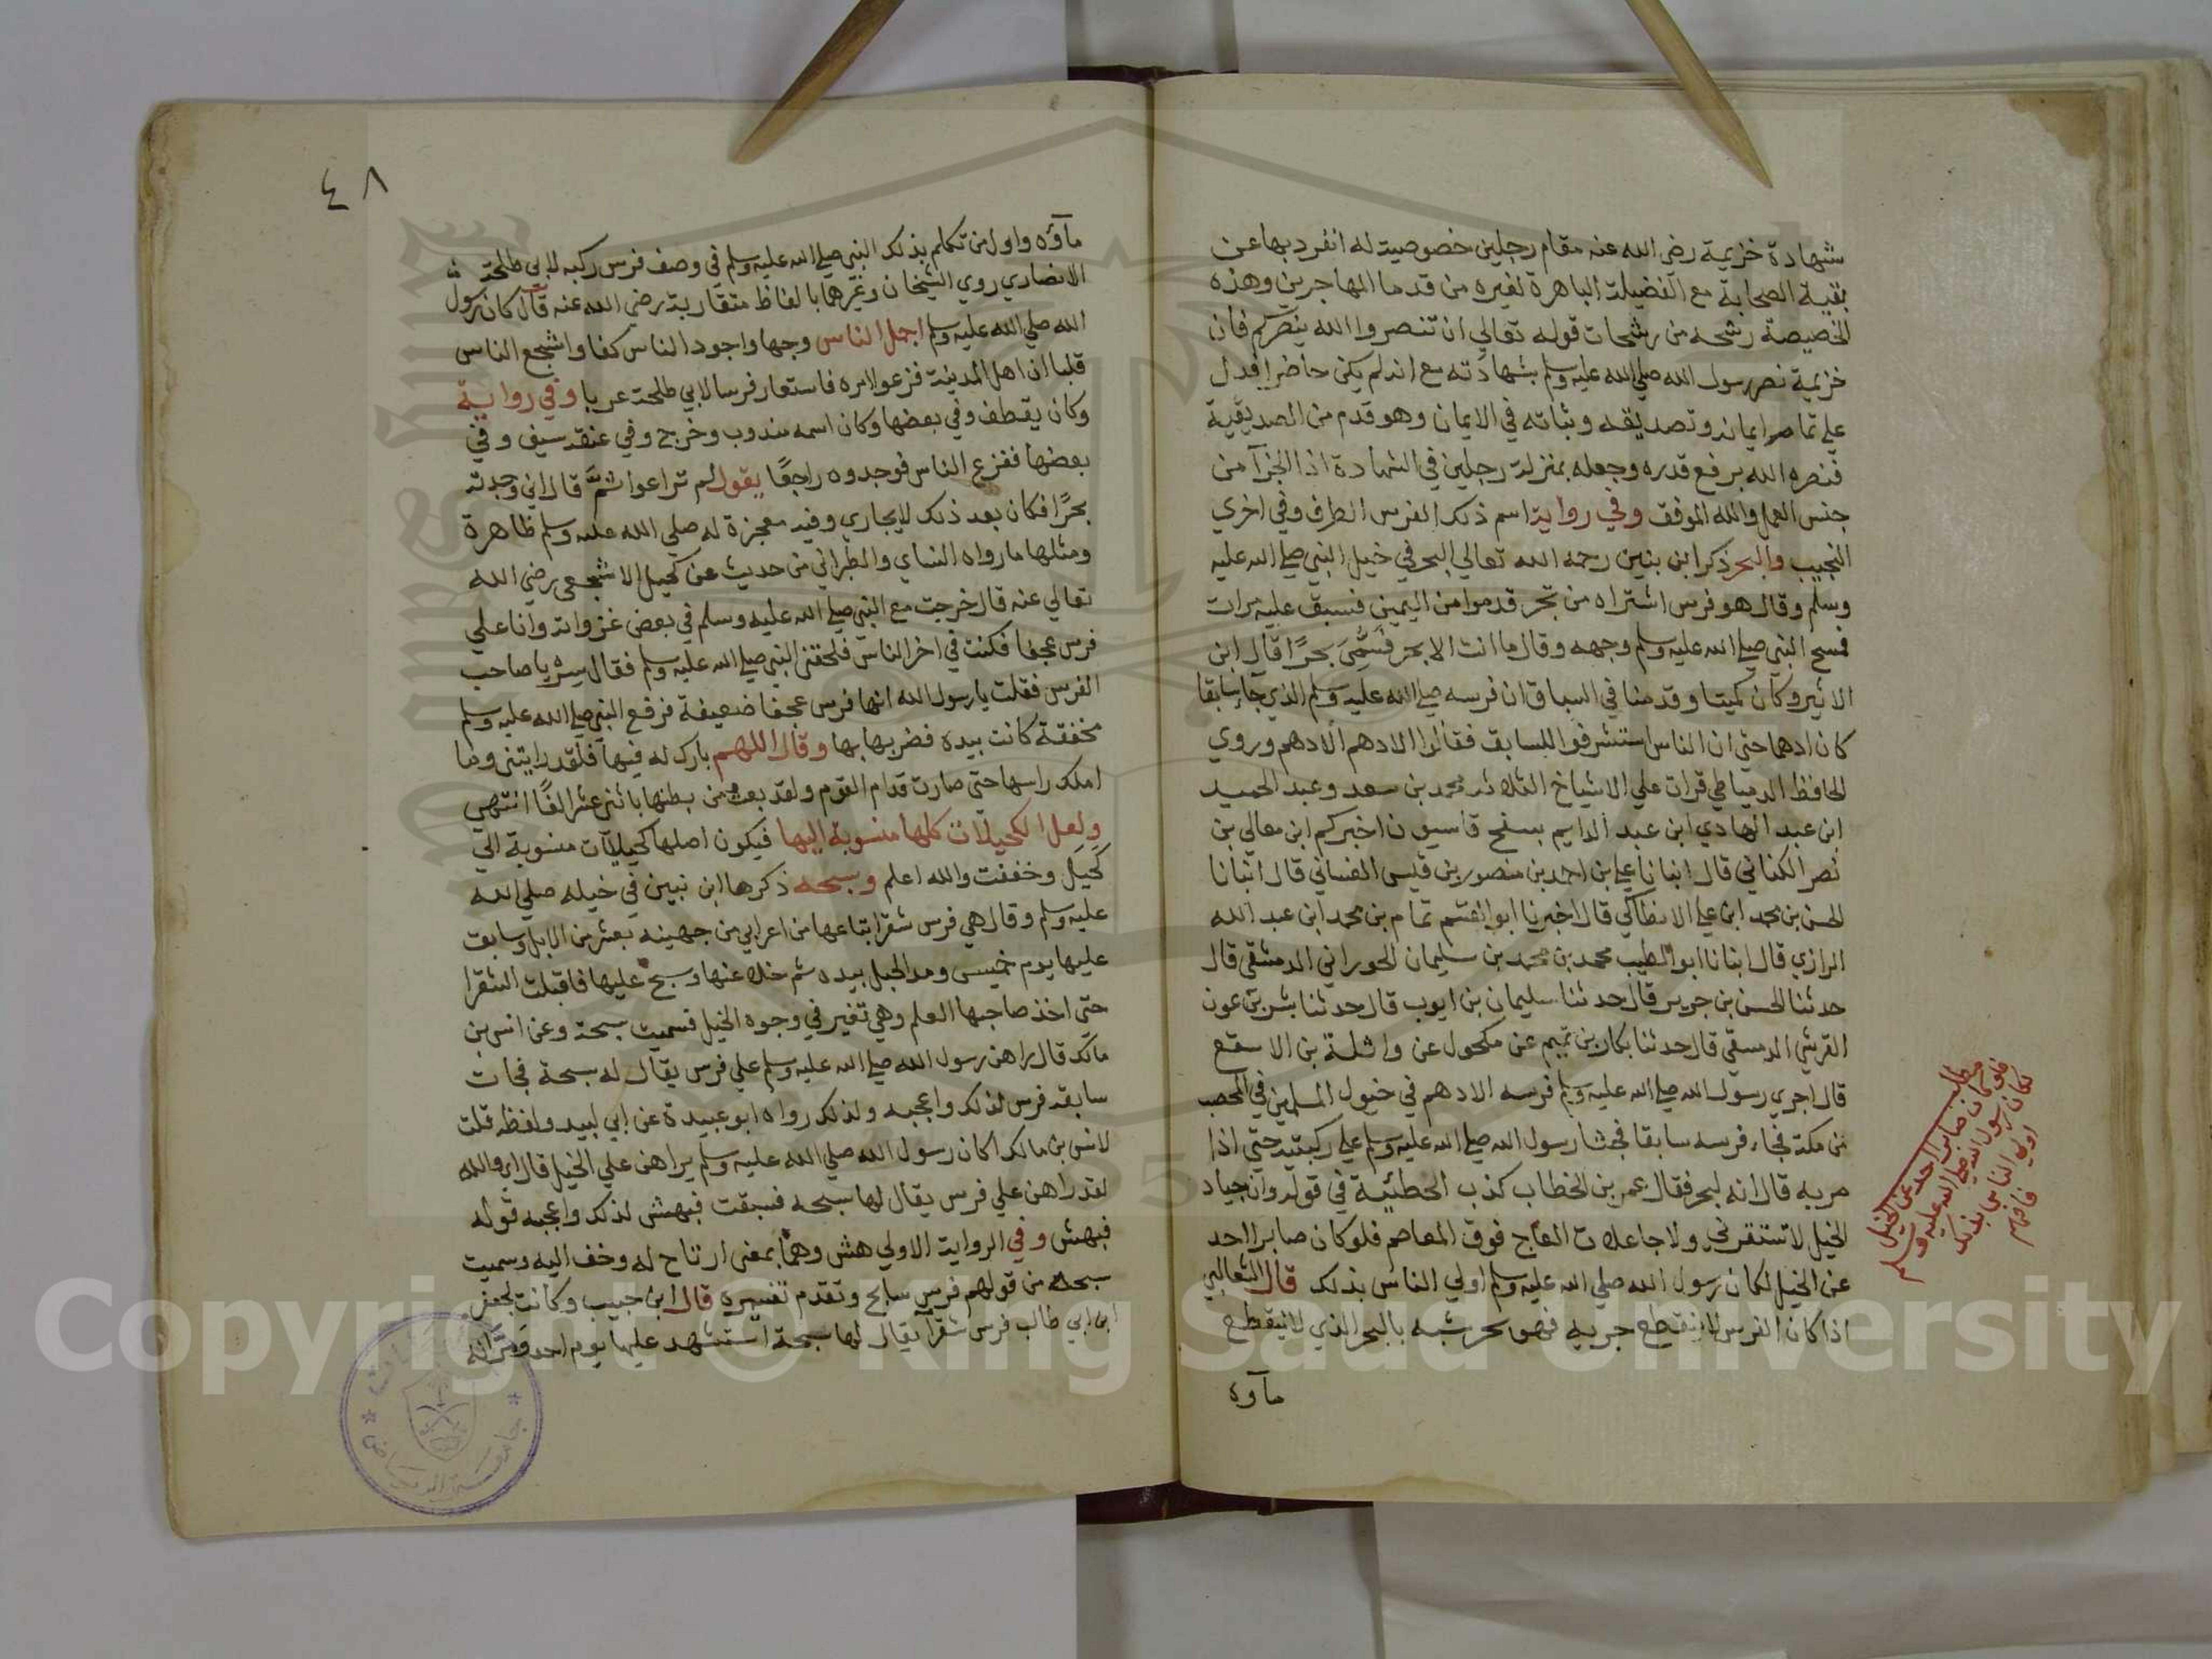 شهادة خزيمة رضي الله عنه مقام رجلين خصوصية له انفرد بها عن
بقية الصحابة مع الفضيلة الباهرة لغيره من قدما المهاجرين وهذه
الخصيصة رشحه من رشحات قوله تعالي ان تنصروا الله ينصركم فان
خزيمة نصر رسول الله صلي الله عليه وسلم بشهادته مع انه لم يكن حاضرا فدل
علي تمام ايمانه وتصديقه وثباته في الايمان وهو قدم من الصديقية
فنصره الله برفع قدره وجعله بمنزلة رجلين في الشهادة اذ الجزآ من
جنس العمل والله الموفق وفي رواية اسم ذلك الفرس الطرف وفي اخري
النجيب والبحر ذكر ابن بنين رحمه الله تعالي البحر في خيل النبي صلي الله عليه
وسلم وقال هو فرس اشتراه من تجر قدموا من اليمين فسبق عليه مرات
فمسح النبي صلي الله عليه وسلم وجهه وقال ما انت الا بحر فسُمِّيَ بحرًا قال ابن
الاثير وكان كميتا وقدمنا في السباق ان فرسه صلي الله عليه وسلم الذي جآ سابقا
كان ادهما حتي ان الناس استشرفوا للسابق فقالوا الادهم الادهم وروي
الحافظ الدمياطي قرات علي الاشياخ الثلاثه محمد بن سعد وعبد الحميد
ابن عبد الهادي ابن عبد الدايم بسفح قاسيون اخبركم ابن معالي بن
نصر الكناني قال انبانا علي بن احمد بن منصور بن قيس الغساني قال انبانا
الحسن بن محمد ابن علي الانطاكي قال اخبرنا ابو القسم تمام بن محمد ابن عبد الله
الرازي قال انبانا ابو الطيب محمد بن محمد بن سليمان الحوراني الدمشقي قال
حدثنا الحسن بن جرير قال حدثنا سليمان بن ايوب قال حدثنا بشر بن عون
القرشي الدمسقي قال حدثنا بكار بن تميم عن مكحول عن واثلة بن الاسقع
قال اجري رسول الله صلي الله عليه وسلم فرسه الادهم في خيول المسلمين في المحصب
من مكة فجاء فرسه سابقا فجثا رسول الله صلي الله عليه وسلم علي ركبتيه حتي اذا
مر به قال انه لبحر فقال عمر بن الخطاب كذب الحطئية في قوله وان جياد
الخيل لا تستفزني ولا جاعلات العاج فوق المعاصم فلو كان صابرا احد
عن الخيل لكان رسول الله صلي الله عليه وسلم اولي الناس بذلك قال الثعالبي
اذا كان الفرس لا ينقطع جريه فهو بحر شبه بالبحر الذي لا ينقطع
مآوه
مطلب
فلو كان صابرا احد عن الخيل
لكان رسول الله صلي الله عليه وسلم
اولي الناس بذلك
فافهم
٤٨
مآؤه واول من تكلم بذلك النبي صلي الله عليه وسلم في وصف فرس ركبه لابي طلحة
الانصاري روي الشيخان وغيرهما بالفاظ متقاربة رضي الله عنه قال كان رسول
الله صلي الله عليه وسلم اجمل الناس وجها واجود الناس كفا واشجع الناس
قلبا ان اهل المدينة فزعوا مره فاستعار فرسا لابي طلحة عريا وفي رواية
وكان يقطف وفي بعضها وكان اسمه مندوب وخرج وفي عنقه سيف وفي
بعضها ففزع الناس فوجدوه راجعًا يقول لم تراعوا ثمَّ قال اني وجدته
بحرًا فكان بعد ذلك لا يجاري وفيه معجزة له صلي الله عليه وسلم ظاهرة
ومثلها ما رواه النساي والطبراني من حديث عن كحيل الاشجعي رضي الله
تعالي عنه قال خرجت مع النبي صلي الله عليه وسلم في بعض غزواته وانا علي
فرس عجفا فكنت في اخر الناس فلحقني النبي صلي الله عليه وسلم فقال سِرْ يا صاحب
الفرس فقلت يا رسول الله انها فرس عجفا ضعيفة فرفع النبي صلي الله عليه وسلم
مخفقة كانت بيده فضربها بها وقال اللهم بارك له فيها فلقد رايتني وما
املك راسها حتي صارت قدام القوم ولقد بعت من بطنها باثني عشر الفًا انتهي
ولعل الكحيلات كلها منسوبة اليها فيكون اصلها كحيليات منسوبة الي
كحيل وخففت والله اعلم وسبحه ذكرها ابن نبين في خيله صلي الله
عليه وسلم وقال هي فرس شقرا ابتاعها من اعرابي من جهينه بعشر من الابل وسابق
عليها يوم خميس ومد الحبل بيده ثم خلا عنها وسبح عليها فاقبلت الشقرا
حتي اخذ صاحبها العلم وهي تغير في وجوه الخيل فسميت سبحة وعن انس بن
مالك قال راهن رسول الله صلي الله عليه وسلم علي فرس يقال له سبحة فجات
سابقه فرس لذلك واعجبه ولذلك رواه ابو عبيدة عن ابي لبيد ولفظه قلت
لانس بن مالك اكان رسول الله صلي الله عليه وسلم يراهن علي الخيل قال اي والله
لقد راهن علي فرس يقال لها سبحه فسبقت فبهش لذلك واعجبه قوله
فبهش وفي الرواية الاولي هش وهما بمعني ارتاح له وخف اليه وسميت
سبحه من قولهم فرس سابح وتقدم تفسيره قال ابن حبيب وكانت لجعفر
ابن ابي طالب فرس شقرآ يقال لها سبحة استشهد عليها يوم
جامعة الرياض
Copyright © King Saud University